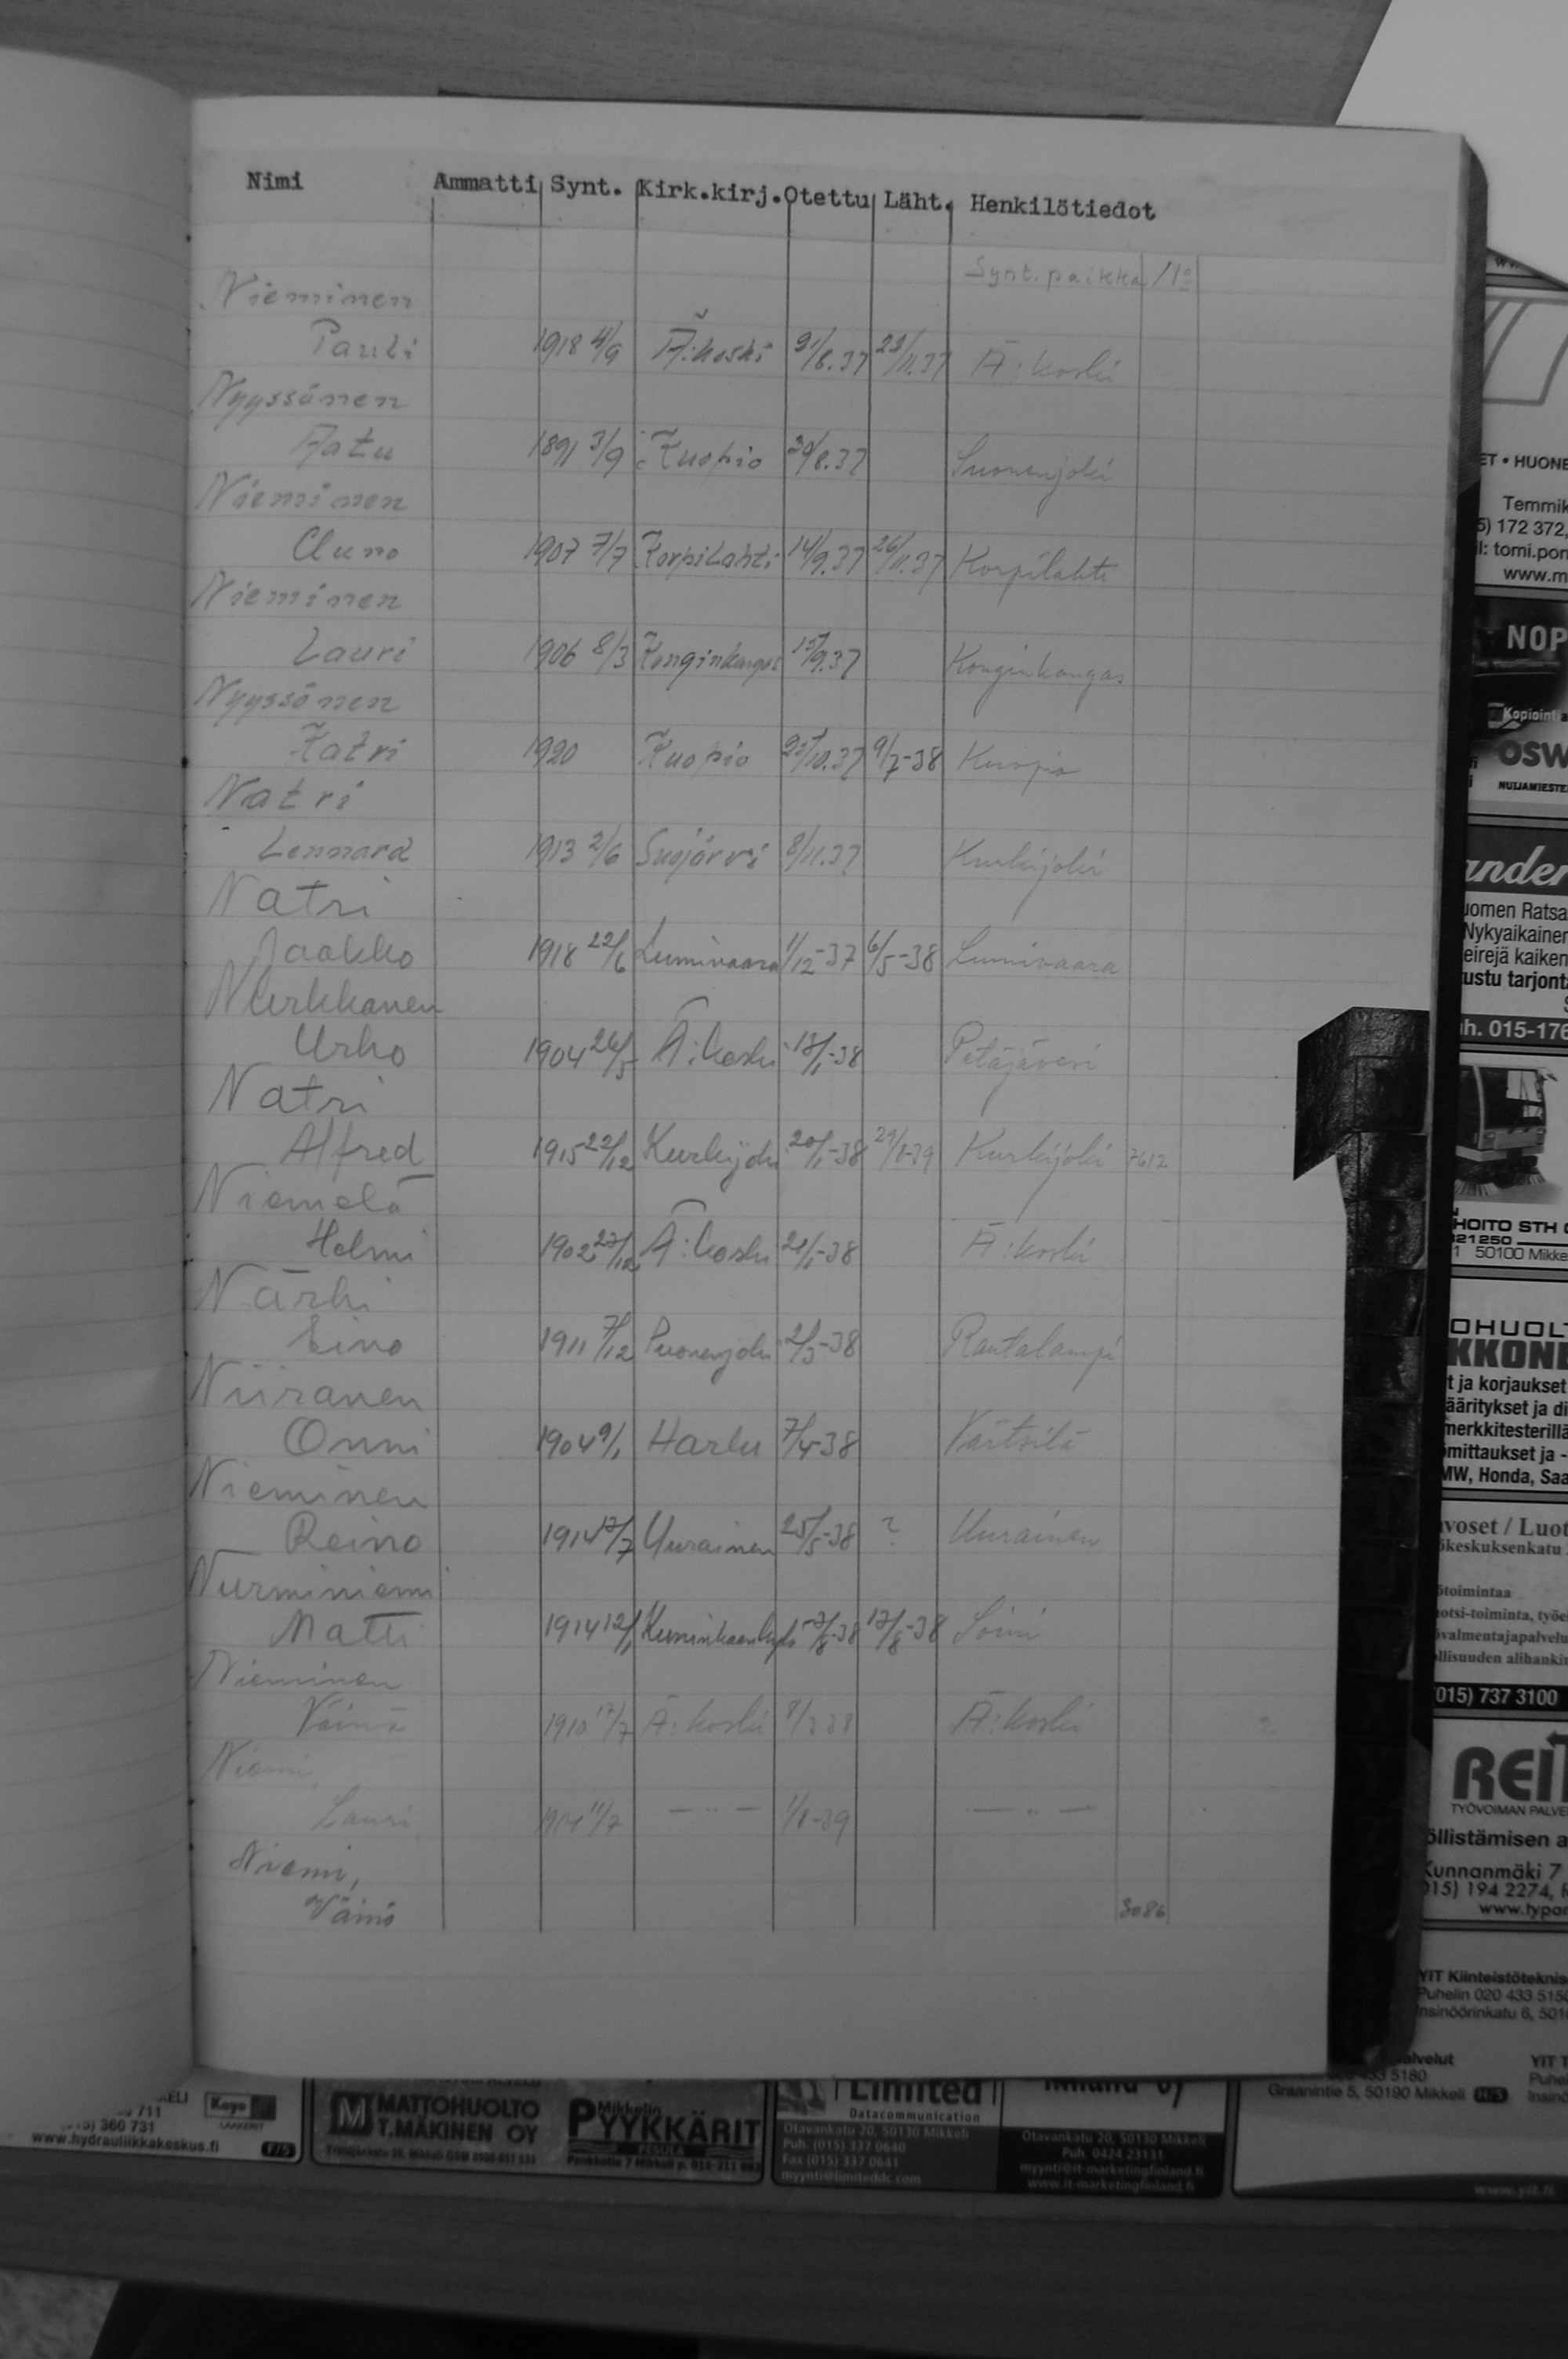 Nimi Ammatti Synt. Kirk.kirj. Otettu Läht. Henkilötiedot
Synt. paikka
Nieminen
Pauli 1918 4/9 Ä:koski 31/8.37 22/11.37 Ä:koski
Nyyssönen
Aatu 1891 3/9 Kuopio 30/8.37 Suonenjoki
Nieminen
Auno 1907 7/7 Korpilahti 14/9.37 26/11.37 Korpilahti
Nieminen
Lauri 1906 8/3 Konginkangas 15/9.37 Konginkangas
Nyyssönen
Katri 1920 Kuopio 25/10.37 9/7-38 Kuopio
Natri
Lennard 1913 2/6 Suojärvi 8/11.37 Kurkijoki
Natri
Jaakko 1918 22/6 Lumivaara 1/12-37 6/5-38 Lumivaara
Nurkkanen
Urho 1904 26/5 Ä:koski 13/1-38 Petäjävesi
Natri
Alfred 1915 22/12 Kurkijoki 20/1-38 29/8-39 Kurkijoki 7612
Niemelä
Helmi 1902 27/12 Ä:koski 21/1-38 Ä:koski
Närhi
Eino 1911 7/12 Suonenjoki 2/3-38 Rautalampi
Niiranen
Onni 1904 9/1 Harlu 7/4-38 Värtsilä
Nieminen
Reino 1914 17/7 Uurainen 25/5-38 ? Uurainen
Nurminiemi
Matti 1914 12/1 7/8-38 17/8-38 Soini
Nieminen
Väinö 1910 17/7 Ä:koski Ä:koski
Niemi,
Lauri 1914 11/7 — " — 1/8-39 — " —
Niemi,
Väinö 3086
ET • HUONE
Temmik
5) 172 372,
il: tomi.pon
www.m
NOP
Kopiointi
OSW
NUIJAMIESTE
ander
uomen Ratsa
Nykyaikainen
eirejä kaiken
ustu tarjonta
uh. 015-176
HOITO STH
321250
1 50100 Mikke
OHUOLT
KKONE
t ja korjaukset
ääritykset ja di
merkkitesterillä
omittaukset ja -
MW, Honda, Saa
voset / Luot
ökeskuksenkatu
ötoimintaa
otsi-toiminta, työe
övalmentajapalvelu
ollisuuden alihankin
(015) 737 3100
REIT
TYÖVOIMAN PALVE
öllistämisen a
Kunnanmäki 7
015) 194 2274, f
www.typa
YIT Kiinteistöteknis
Puhelin 020 433 5150
Insinöörinkatu 6, 501
alvelut YIT T
433 5180 Puhe
Graanintie 5, 50190 Mikkeli H/5 Insinö
KELI
711
360 731
www.hydrauliikkakeskus.fi F/5
Koyo
LAAKERIT
MATTOHUOLTO
T.MÄKINEN OY
Mikkelin
PYYKKÄRIT
PESULA
Limited
Datacommunication
Otavankatu 20, 50130 Mikkeli
Puh. (015) 337 0640
Fax (015) 337 0641
myynti@limiteddc.com
Otavankatu 20, 50130 Mikkeli
Puh. 0424 23131
myynti@it-marketingfinland.fi
www.it-marketingfinland.fi
www.yit.fi